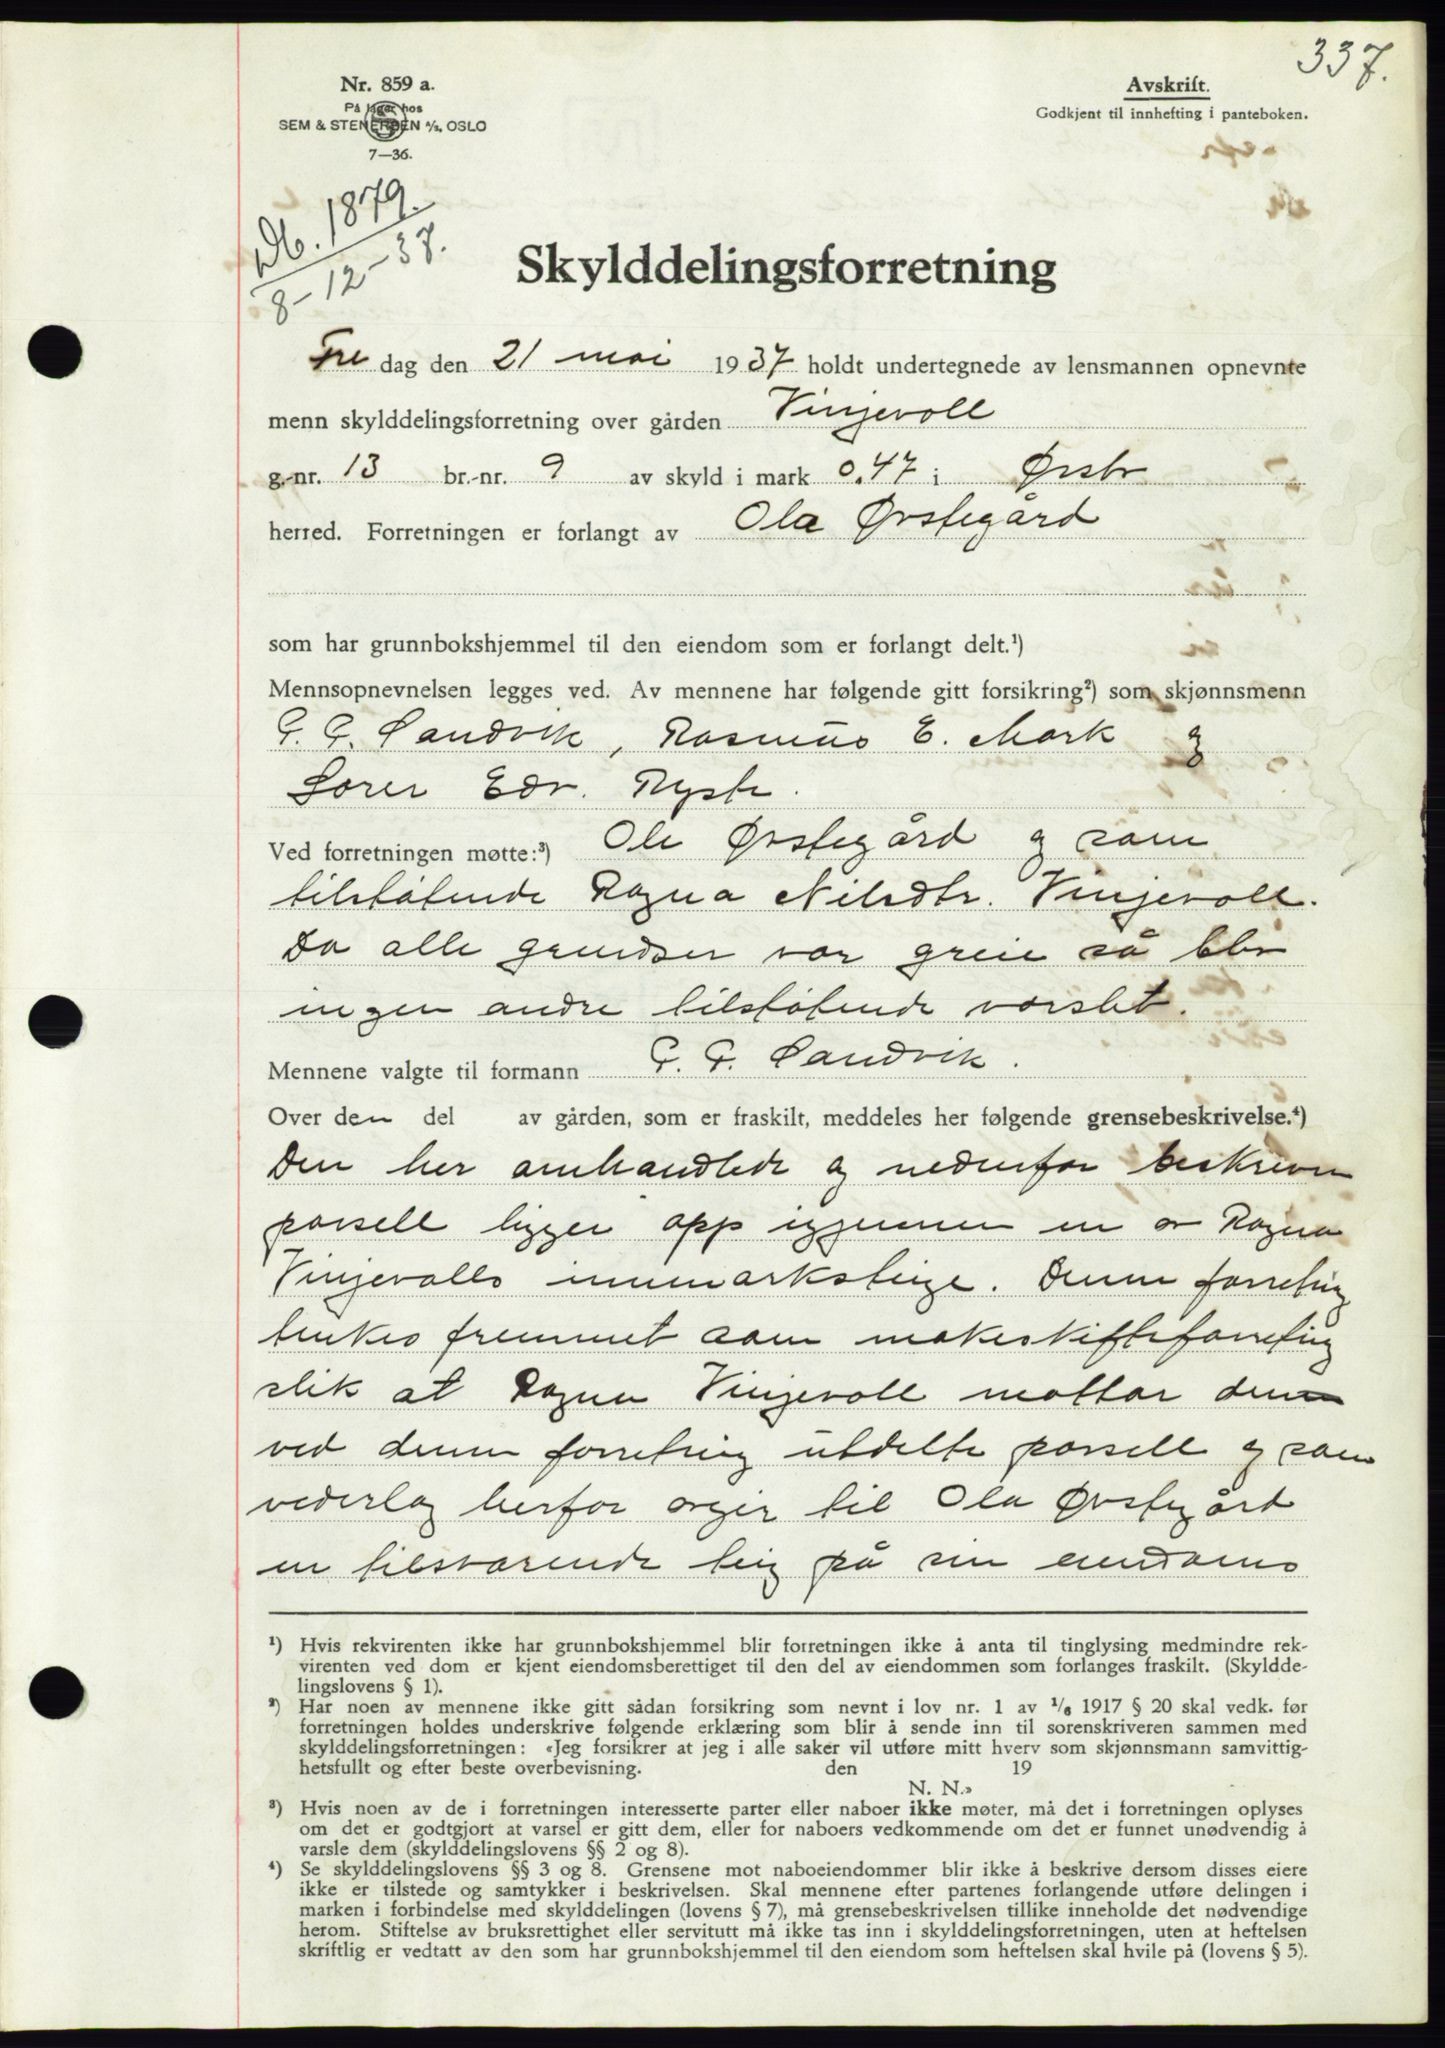 337.
Nr. 859 a.
På lager hos
SEM & STENERSEN A/S, OSLO
7—36.
Avskrift.
Godkjent til innhefting i panteboken.
Db. 1879.
8-12-37.
Skylddelingsforretning
Fre dag den 21 mai 1937 holdt undertegnede av lensmannen opnevnte
menn skylddelingsforretning over gården Vinjevoll
g.-nr. 13 br.-nr. 9 av skyld i mark 0,47 i Ørsta
herred. Forretningen er forlangt av Ola Ørstegård
som har grunnbokshjemmel til den eiendom som er forlangt delt.¹)
Mennsopnevnelsen legges ved. Av mennene har følgende gitt forsikring²) som skjønnsmenn
G. G. Sandvik, Rasmus E. Mork og
Søren Edv. Ryste.
Ved forretningen møtte:³) Ola Ørstegård og som
tilstøtende Ragna Nilsdtr. Vinjevoll.
Da alle grendser var greie så blev
ingen andre tilstøtende varslet.
Mennene valgte til formann G. G. Sandvik.
Over den del av gården, som er fraskilt, meddeles her følgende grensebeskrivelse.⁴)
Den her omhandlede og nedenfor beskrevne
parsell ligger opp igjennem en av Ragna
Vinjevolls innmarksteige. Denne forretning
tenkes fremmet som makeskifteforretning
slik at Ragna Vinjevoll mottar den
ved denne forretning utdelte parsell og som
vederlag herfor avgir til Ola Ørstegård
en tilsvarende teig på sin eiendoms
¹) Hvis rekvirenten ikke har grunnbokshjemmel blir forretningen ikke å anta til tinglysing medmindre rek-
virenten ved dom er kjent eiendomsberettiget til den del av eiendommen som forlanges fraskilt. (Skyldde-
lingslovens § 1).
²) Har noen av mennene ikke gitt sådan forsikring som nevnt i lov nr. 1 av ¹/₆ 1917 § 20 skal vedk. før
forretningen holdes underskrive følgende erklæring som blir å sende inn til sorenskriveren sammen med
skylddelingsforretningen: «Jeg forsikrer at jeg i alle saker vil utføre mitt hverv som skjønnsmann samvittig-
hetsfullt og efter beste overbevisning. den 19
N. N.»
³) Hvis noen av de i forretningen interesserte parter eller naboer ikke møter, må det i forretningen oplyses
om det er godtgjort at varsel er gitt dem, eller for naboers vedkommende om det er funnet unødvendig å
varsle dem (skylddelingslovens §§ 2 og 8).
⁴) Se skylddelingslovens §§ 3 og 8. Grensene mot naboeiendommer blir ikke å beskrive dersom disses eiere
ikke er tilstede og samtykker i beskrivelsen. Skal mennene efter partenes forlangende utføre delingen i
marken i forbindelse med skylddelingen (lovens § 7), må grensebeskrivelsen tillike inneholde det nødvendige
herom. Stiftelse av bruksrettighet eller servitutt må ikke tas inn i skylddelingsforretningen, uten at heftelsen
skriftlig er vedtatt av den som har grunnbokshjemmel til den eiendom som heftelsen skal hvile på (lovens § 5).